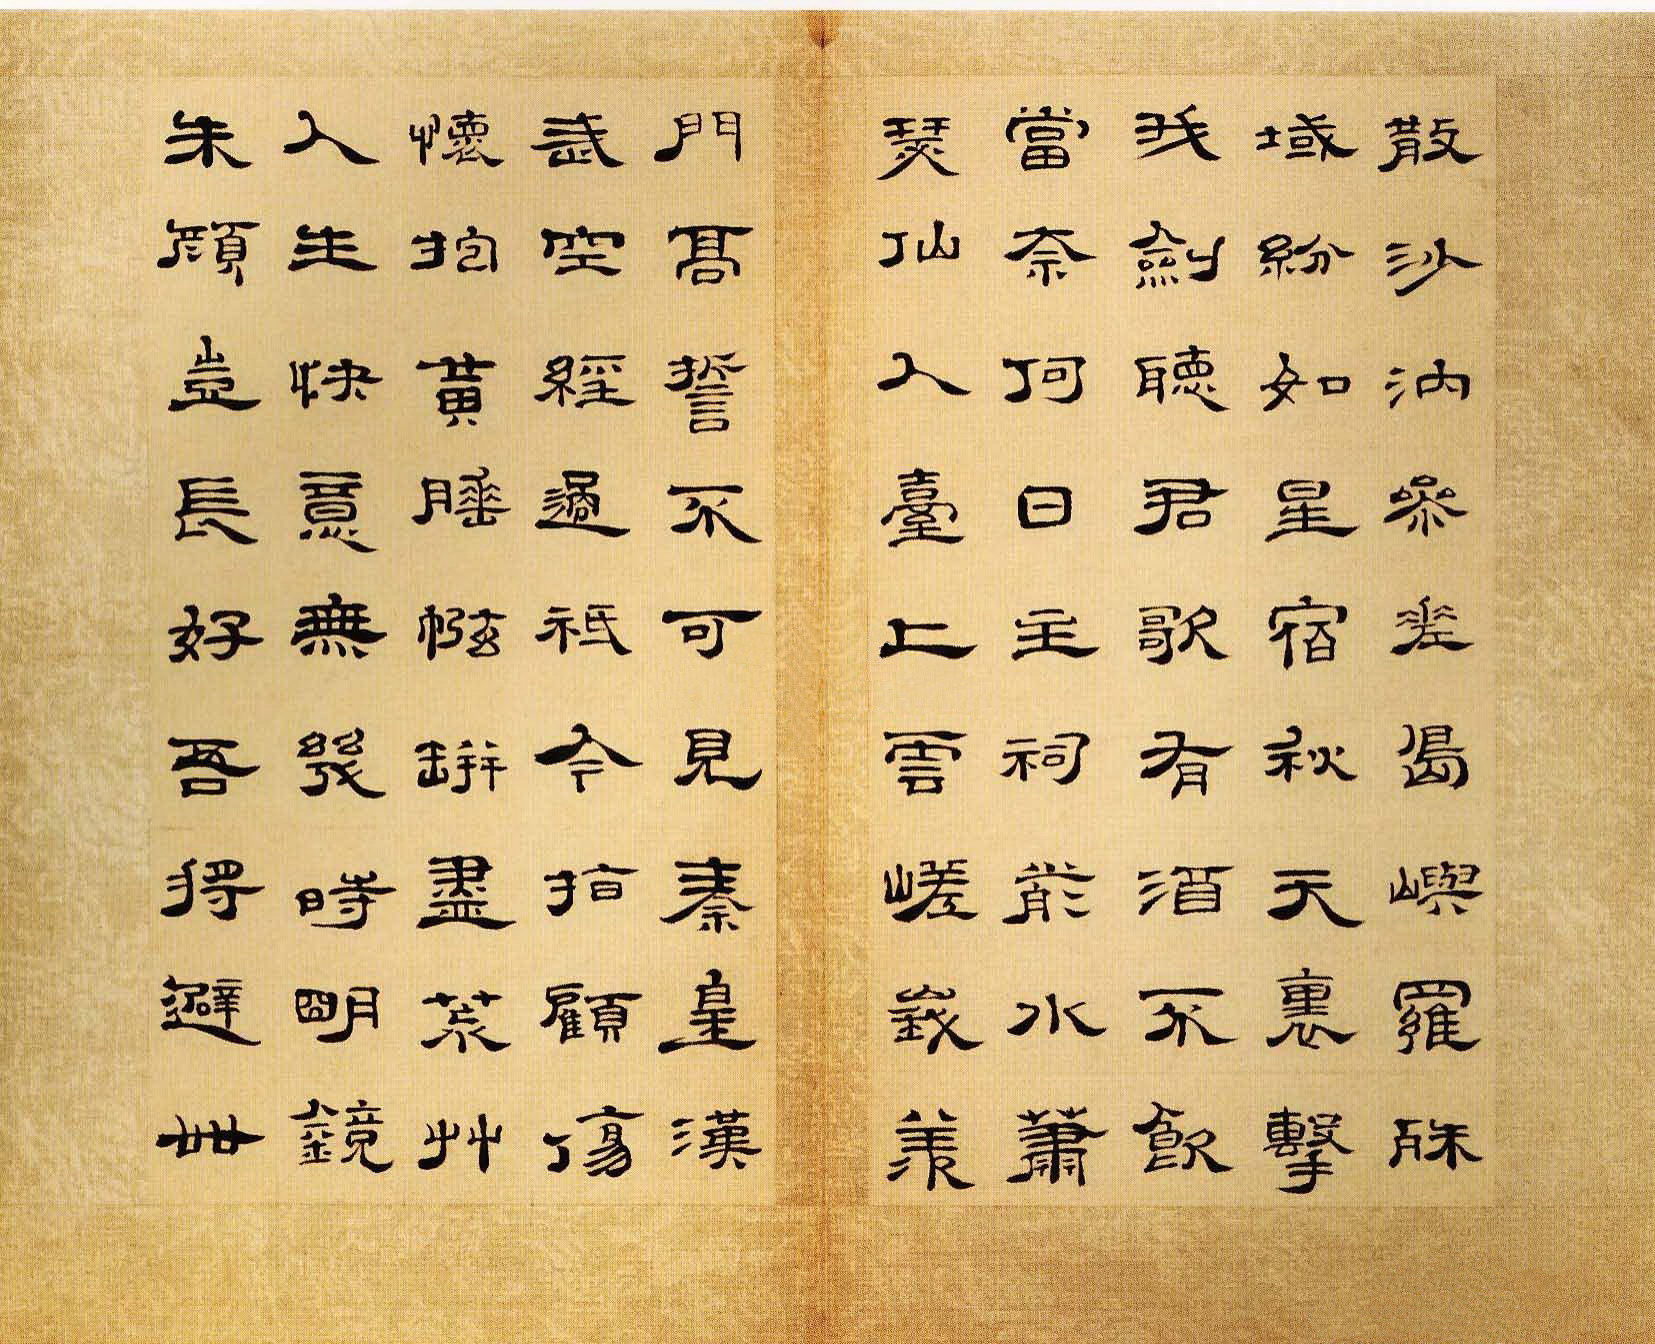 散沙汭參差島嶼羅殊
域紛如星宿秋天裏擊
我劍聽君歌有酒不飲
當奈何日主祠水蕭
瑟仙人臺上雲嵯峨羨
門高誓不可見秦皇漢
武空經過祇今指顧傷
懷抱黃腄㡉缾盡荒艸
人生快意無幾時明鏡
朱顏豈長好吾將避世